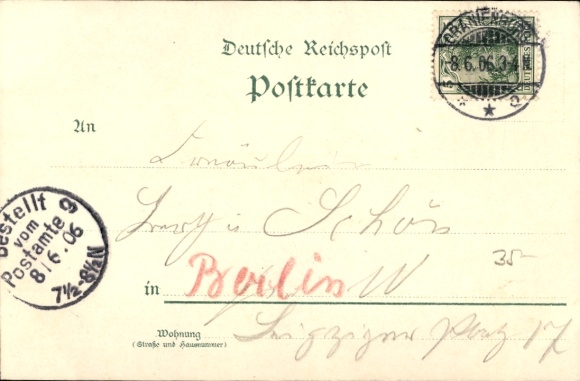 Deutsche Reichspost
Postkarte
ORANIENBURG
8.6.06.3-4N
DEUTSCHES
An
Fräulein
Schön
Bestellt
vom
Postamte 9
8/6.06
7½-8½N
in Berlin W
35-
Wohnung
(Straße und Hausnummer)
Leipziger Platz 17